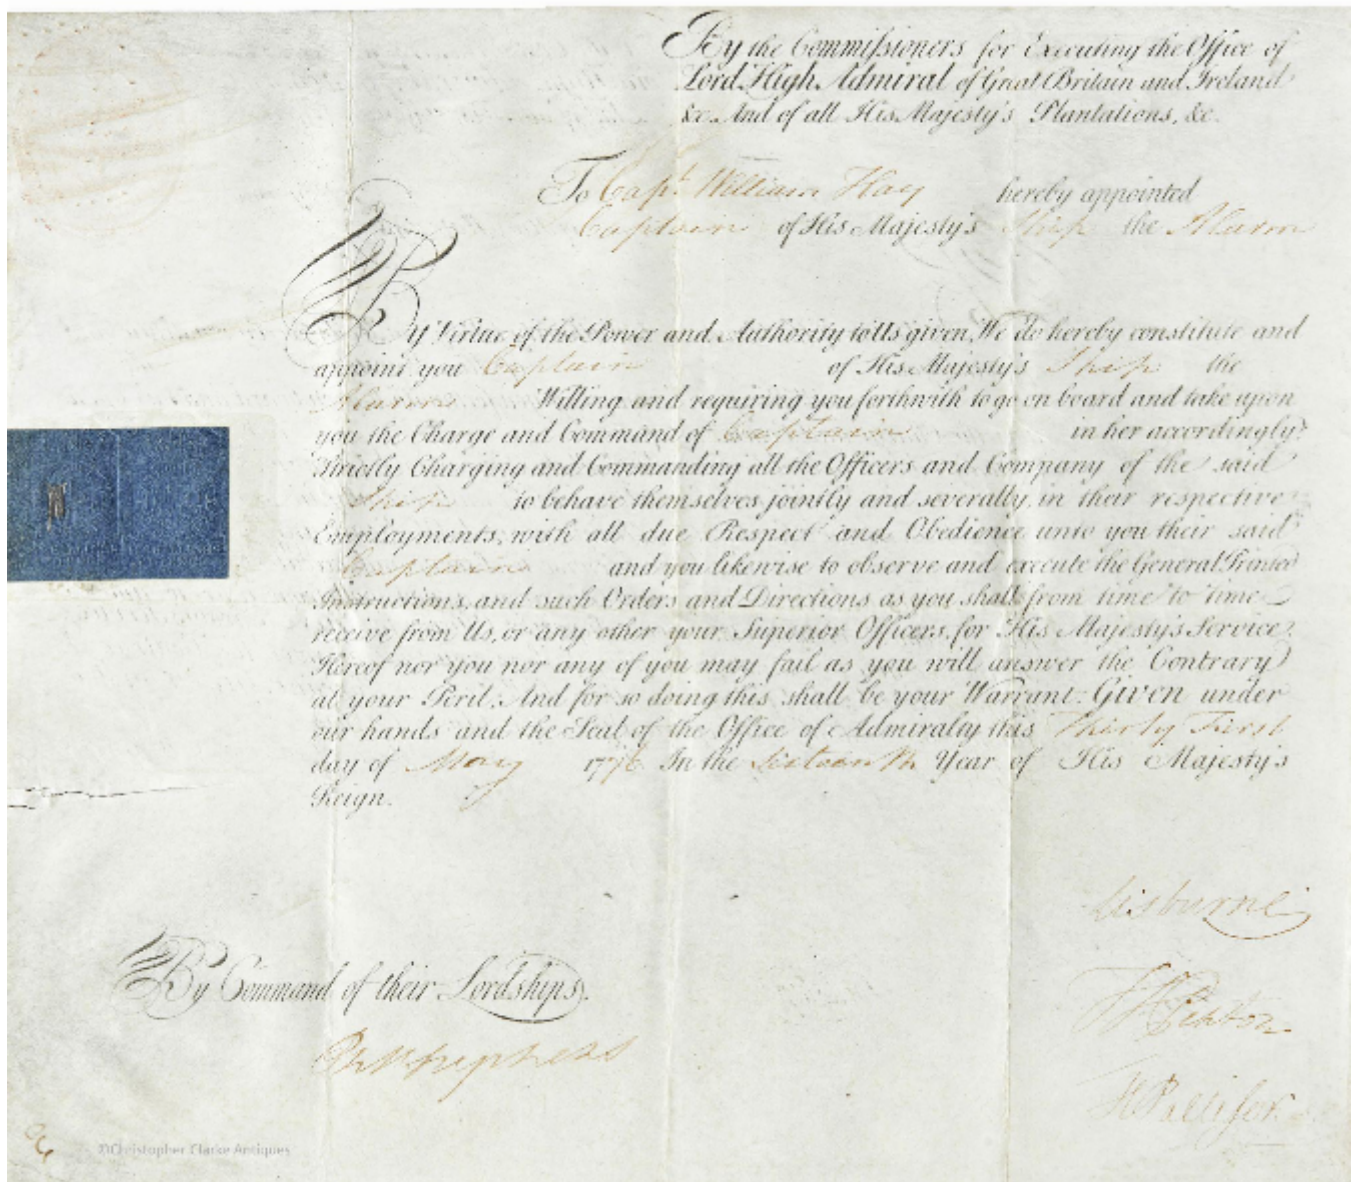 By the Commissioners for Executing the Office of
Lord High Admiral of Great Britain and Ireland
&c. And of all His Majesty's Plantations, &c.
To Capt. William Hay hereby appointed
Captain of His Majesty's Ship the Alarm
By Virtue of the Power and Authority to Us given, We do hereby constitute and
appoint you Captain of His Majesty's Ship the
Alarm Willing and requiring you forthwith to go on board and take upon
you the Charge and Command of Captain in her accordingly.
Strictly Charging and Commanding all the Officers and Company of the said
Ship to behave themselves jointly and severally, in their respective
Employments, with all due Respect and Obedience unto you their said
Captain and you likewise to observe and execute the General Printed
Instructions, and such Orders and Directions as you shall from time to time
receive from Us, or any other your Superior Officers, for His Majesty's Service.
Hereof nor you nor any of you may fail as you will answer the Contrary
at your Peril. And for so doing this shall be your Warrant. Given under
our hands and the Seal of the Office of Admiralty this Thirty First
day of May 1776 In the Sixteenth Year of His Majesty's
Reign.
Lisburne
By Command of their Lordships.
Penton
Ph Stephens
H Palliser
©Christopher Clarke Antiques